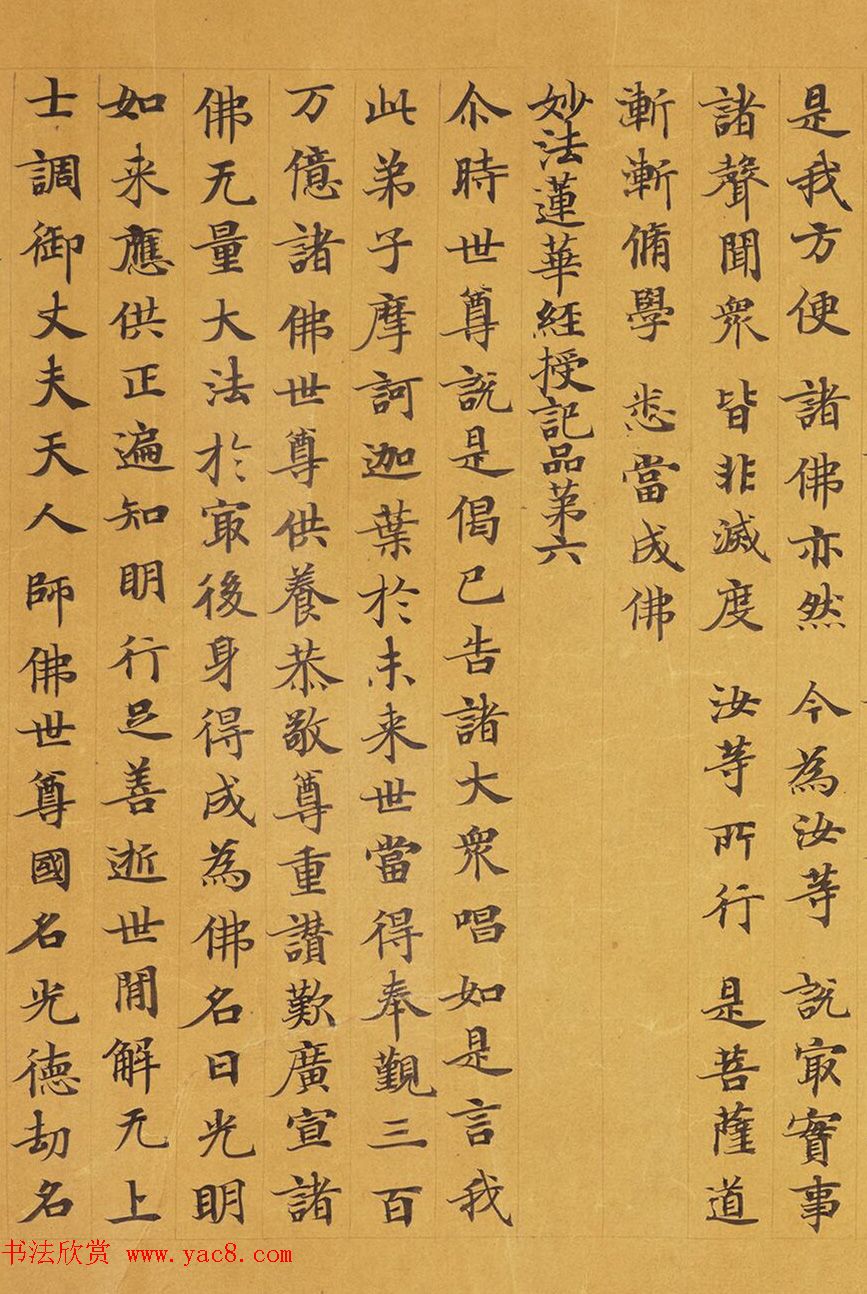 是我方便 諸佛亦然 今為汝等 說冣實事
諸聲聞眾 皆非滅度 汝等所行 是菩薩道
漸漸脩學 悉當成佛
妙法蓮華經授記品第六
尒時世尊說是偈已告諸大眾唱如是言我
此弟子摩訶迦葉於未来世當得奉覲三百
万億諸佛世尊供養恭敬尊重讃歎廣宣諸
佛无量大法於冣後身得成為佛名曰光明
如来應供正遍知明行足善逝世間解无上
士調御丈夫天人師佛世尊國名光德劫名
书法欣赏 www.yac8.com